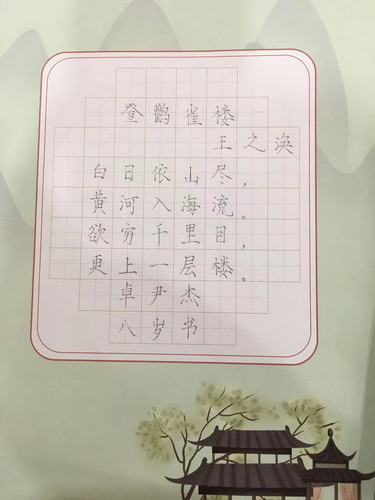 登鹳雀楼
王之涣
白日依山尽，
黄河入海流。
欲穷千里目，
更上一层楼。
卓尹杰
八岁书